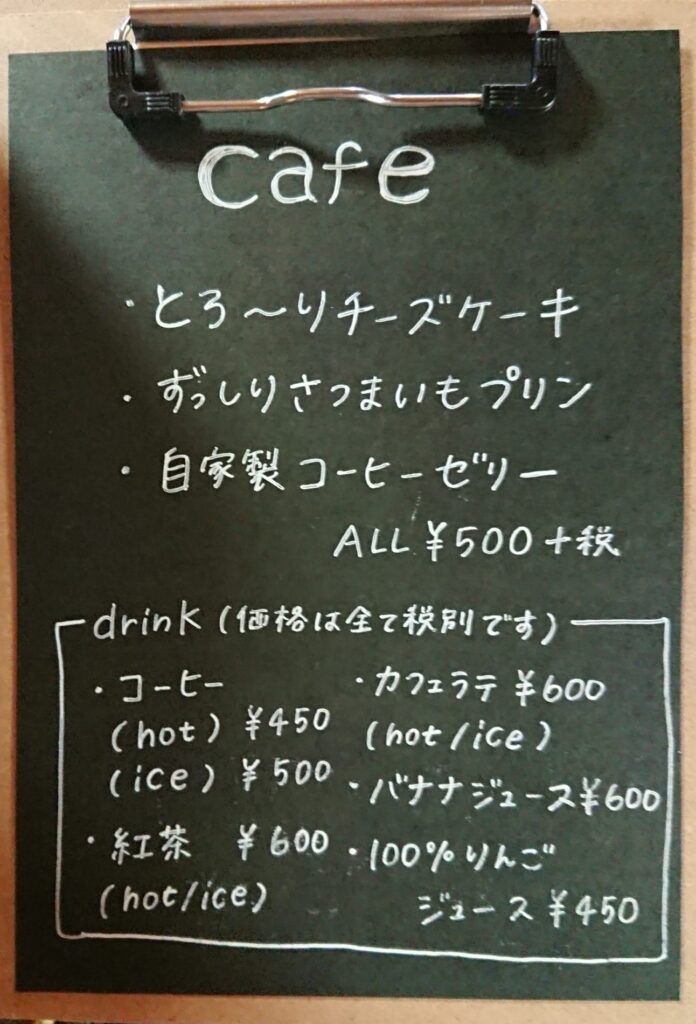 cafe
・とろ～りチーズケーキ
・ずっしりさつまいもプリン
・自家製コーヒーゼリー
ALL ¥500+税
drink (価格は全て税別です)
・コーヒー
(hot) ¥450
(ice) ¥500
・紅茶 ¥600
(hot/ice)
・カフェラテ ¥600
(hot/ice)
・バナナジュース ¥600
・100%りんご
ジュース ¥450